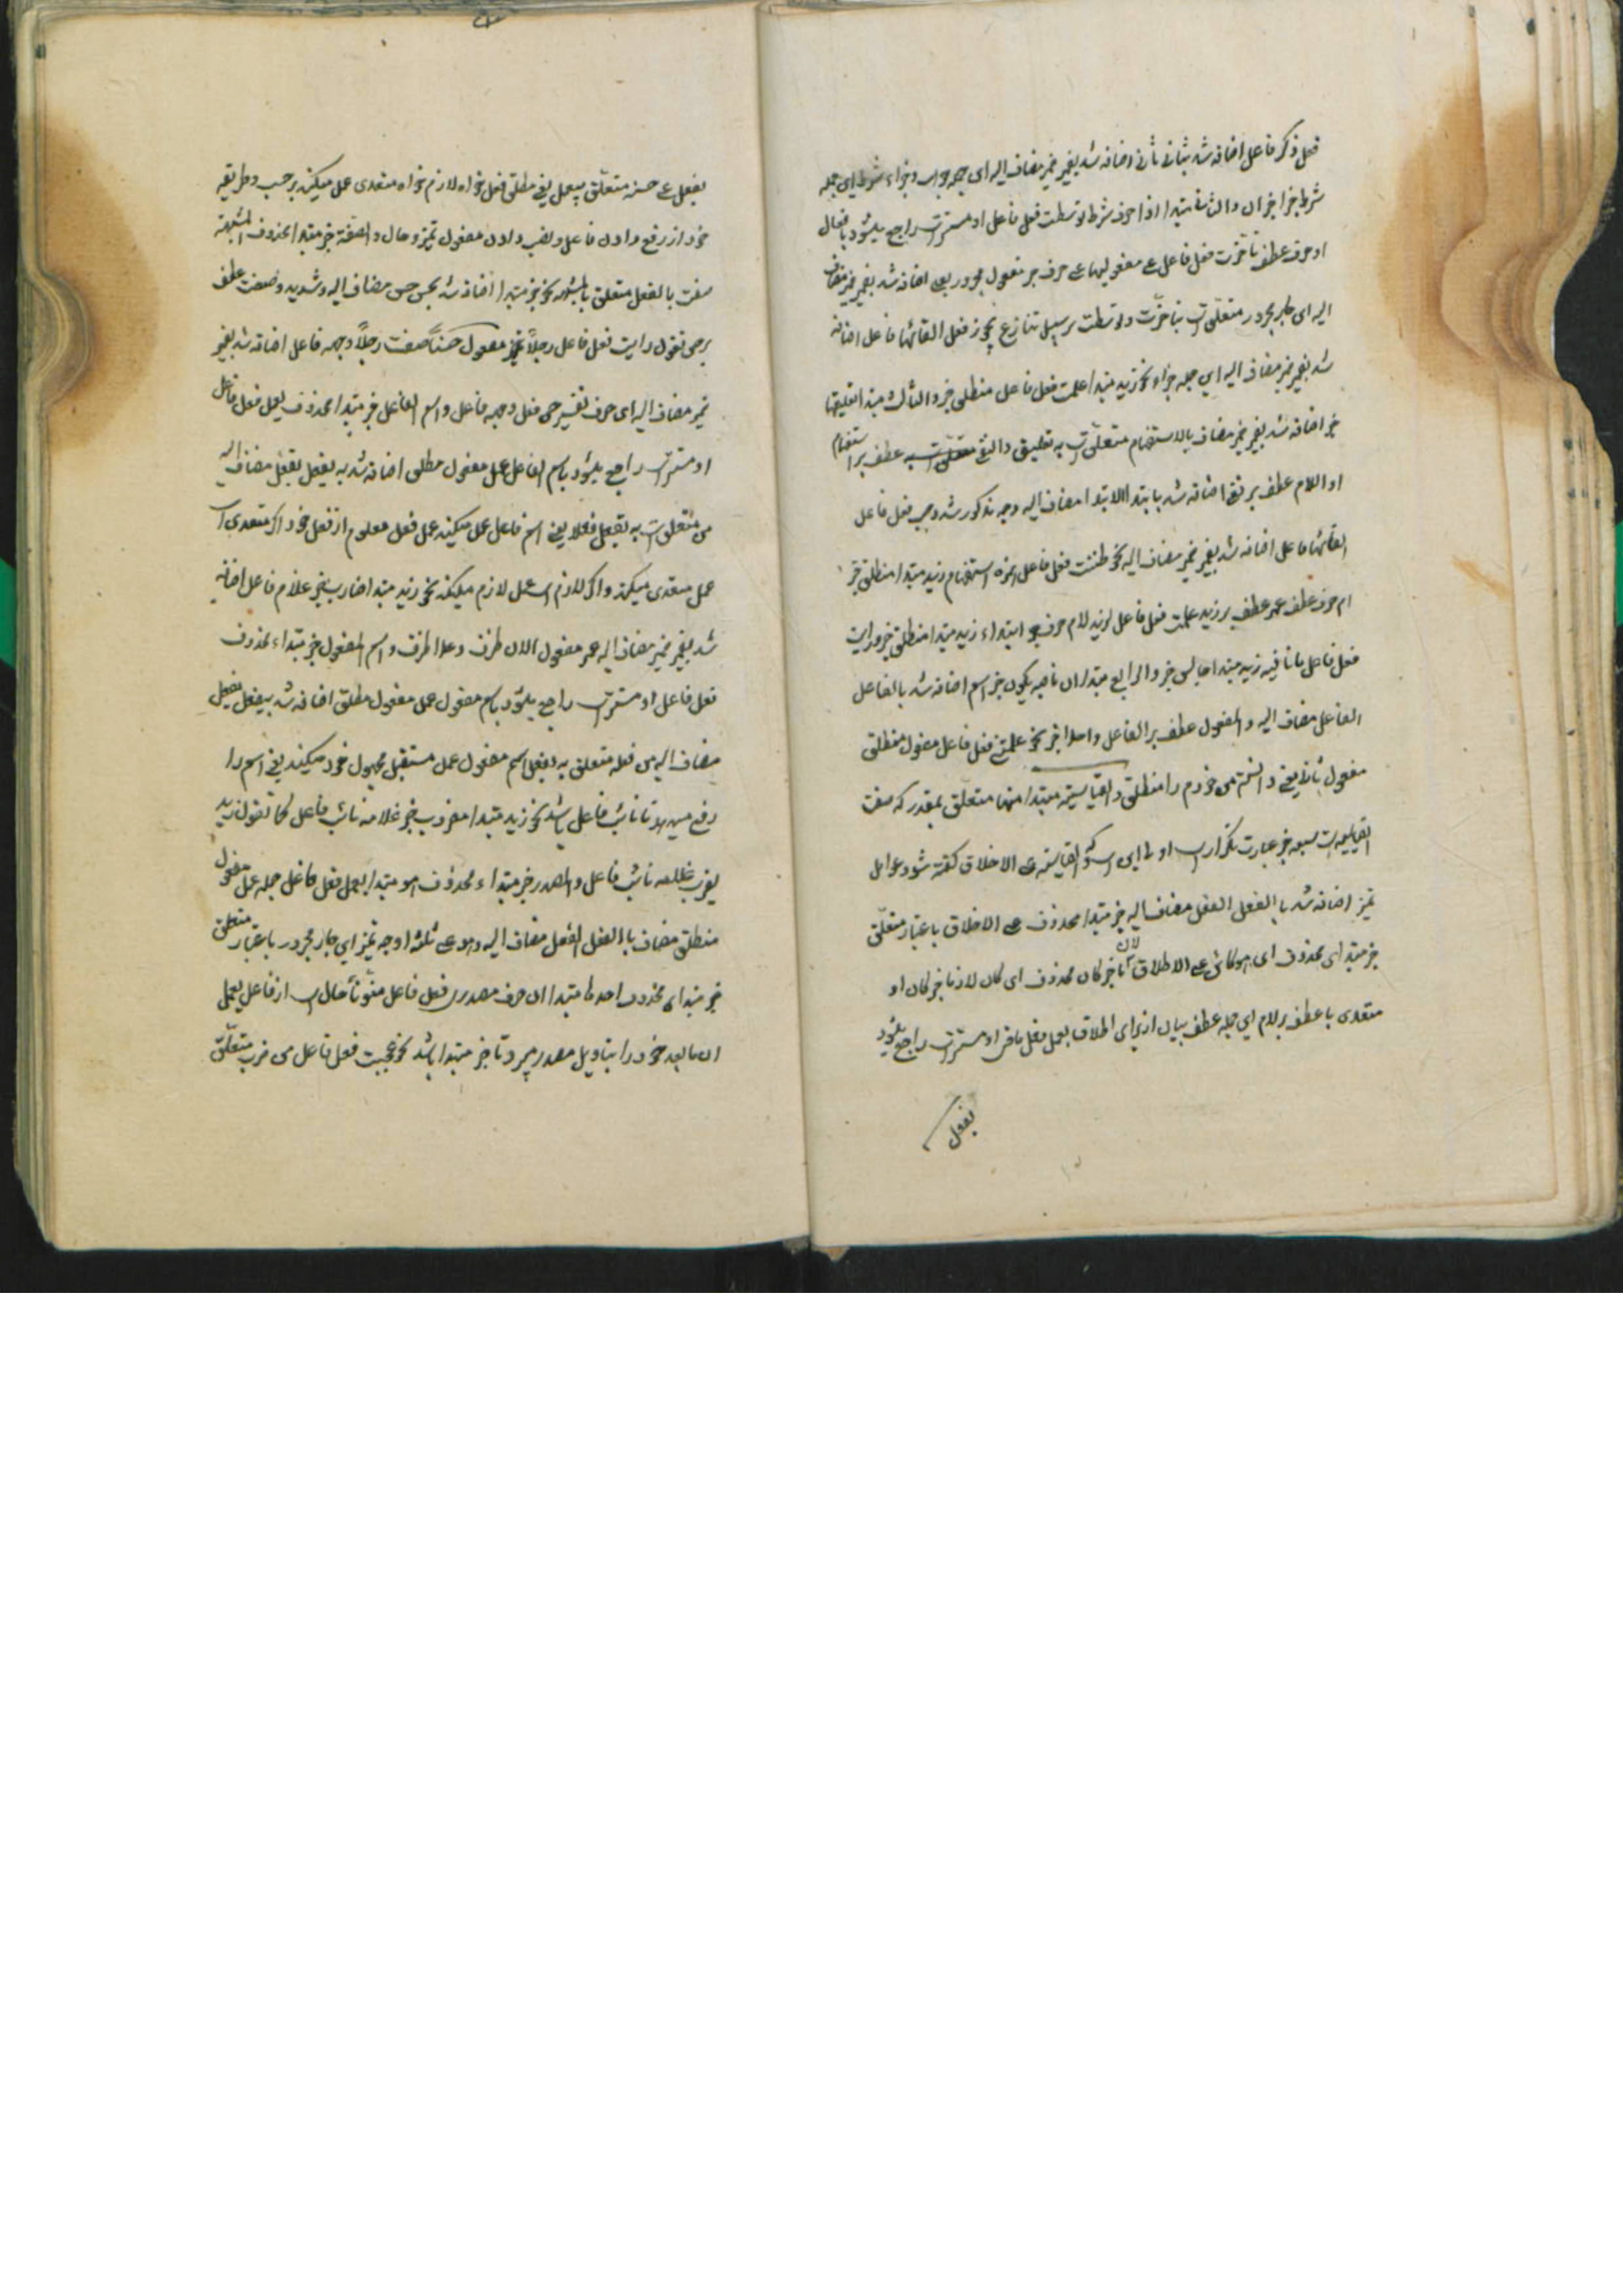 فعل ذکر فاعل اضافه شد بثانی ثانی اضافه شد بغیر غیر مضاف الیه ای جمله جواب و جزاء شرط ای جمله
شرط جزا خبر ان والثانی مبتدا اذا حرف شرط توسطت فعل فاعل او مستتر است راجع میشود بافعال
او حرف عطف تأخرت فعل فاعل عن مفعولیها عن حرف جر مفعول مجرور یعنی اضافه شد بغیر غیر مضاف
الیه ای جار مجرور متعلق است بتأخرت و توسطت بر سبیل تنازع یجوز فعل الغائها فاعل اضافه
شد بغیر غیر مضاف الیه ای جمله جزاء نحو زید مبتدا علمت فعل فاعل منطلق خبر والثالث مبتدا تعلیقها
خبر اضافه شد بغیر غیر مضاف بالاستفهام متعلق است به تعلیق والنفی متعلق است به عطف بر استفهام
او اللام عطف بر نفی اضافه شد بابتدا الابتدا مضاف الیه وجه مذکور شد وجب فعل فاعل
الغائها فاعل اضافه شد بغیر غیر مضاف الیه نحو ظننت فعل فاعل همزه استفهام زید مبتدا منطلق خبر
ام حرف عطف عمر عطف بر زید علمت فعل فاعل لزید لام حرف ابتداء زید مبتدا منطلق خبر ورایت
فعل فاعل ما نافیه زید مبتدا جالس خبر والرابع مبتدا ان ناصبه یکون خبر اسم اضافه شد بالفاعل
الفاعل مضاف الیه والمفعول عطف بر الفاعل واحدا خبر نحو علمتنی فعل فاعل مفعول منطلق
مفعول ثانی یعنی دانستم من خودم را منطلق والقیاسیة مبتدا منها متعلق بمقدر که صفت
القیاسیه است سبعه خبر عبارت تکرار است اولی این است که والقیاسیة علی الاطلاق گفته شود عوامل
تمیز اضافه شد با الفعل الفعل مضاف الیه خبر مبتدا محذوف علی الاطلاق باعتبار متعلق
خبر مبتدای محذوف ای هو کائن علی الاطلاق لازما خبر کان محذوف ای کان لازما خبر کان او
متعدی با عطف بر لام ای جمله عطف بیان از برای اطلاق یعمل فعل او مستتر است راجع میشود
بفعل
بفعل علی حسبه متعلق بیعمل یعنی مطلق فعل خواه لازم خواه متعدی عمل میکند بر حسب و طریقه
خود از رفع دادن فاعل و نصب دادن مفعول تمیز و حال والصفة خبر مبتدا محذوف المشبهة
صفت بالفعل متعلق بالمشبهه نحو خبر مبتدا اضافه شد بحسن حسن مضاف الیه وشدید وصعب عطف
بر حسن تقول رایت فعل فاعل رجلاً مفعول حسناً صفت رجلاً وجهه فاعل اضافه شد بغیر
غیر مضاف الیه ای حرف تفسیر حسن فعل وجهه فاعل واسم الفاعل خبر مبتدا محذوف یعمل فعل فاعل
او مستتر است راجع میشود باسم الفاعل عمل مفعول مطلق اضافه شد به یفعل یفعل مضاف الیه
من متعلق است به یفعل فعله یعنی اسم فاعل عمل میکند عمل فعل معلوم از فعل خود اگر متعدی است
عمل متعدی میکند و اگر لازم است عمل لازم میکند نحو زید مبتدا ضارب خبر غلام فاعل اضافه
شد بغیر غیر مضاف الیه عمر مفعول الان ظرف وغدا ظرف واسم المفعول خبر مبتداء محذوف
فعل فاعل او مستتر است راجع میشود باسم مفعول عمل مفعول مطلق اضافه شد بیفعل یفعل
مضاف الیه من فعله متعلق به یفعل اسم مفعول عمل مستقبل مجهول خود میکند یعنی اسم را
رفع میدهد تا نائب فاعل باشد نحو زید مبتدا مضروب خبر غلامه نائب فاعل کما تقول زید
یضرب غلامه نائب فاعل والمصدر خبر مبتداء محذوف هو مبتدا یعمل فعل فاعل جمله عمل مفعول
مطلق مضاف باالفعل الفعل مضاف الیه وهو علی ثلثة اوجه تمیز ای جار مجرور باعتبار متعلق
خبر مبتدای محذوف احدها مبتدا ان حرف مصدری فعل فاعل منوناً حال است از فاعل یعمل
ان مابعد خود را بتاویل مصدر میبرد تا خبر مبتدا باشد نحو عجبت فعل فاعل من ضرب متعلق